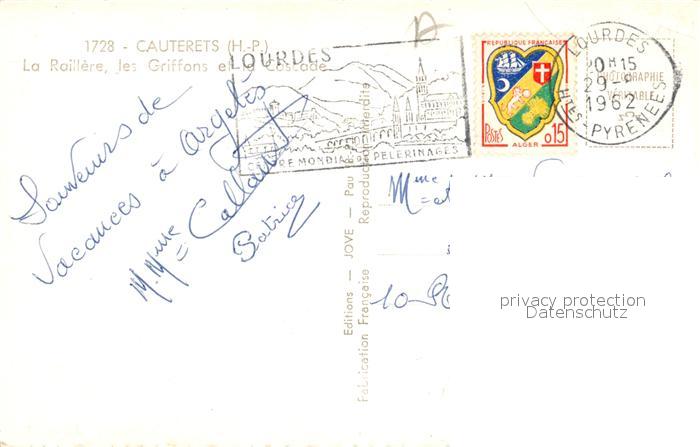 1728 - CAUTERETS (H.-P.)
La Raillère, les Griffons et cade
LOURDES
CENTRE MONDIAL DE PELERINAGES
REPUBLIQUE FRANÇAISE
POSTES 0,15
ALGER
LOURDES
0H15
29-
1962
HTES PYRENEES
PHOTOGRAPHIE
VÉRITABLE
Souvenirs de
Vacances à Argelès
M. Mme
Patrice
Mme
et
10
Editions - JOVE - Pau
Fabrication Française
Reproduction interdite
privacy protection
Datenschutz